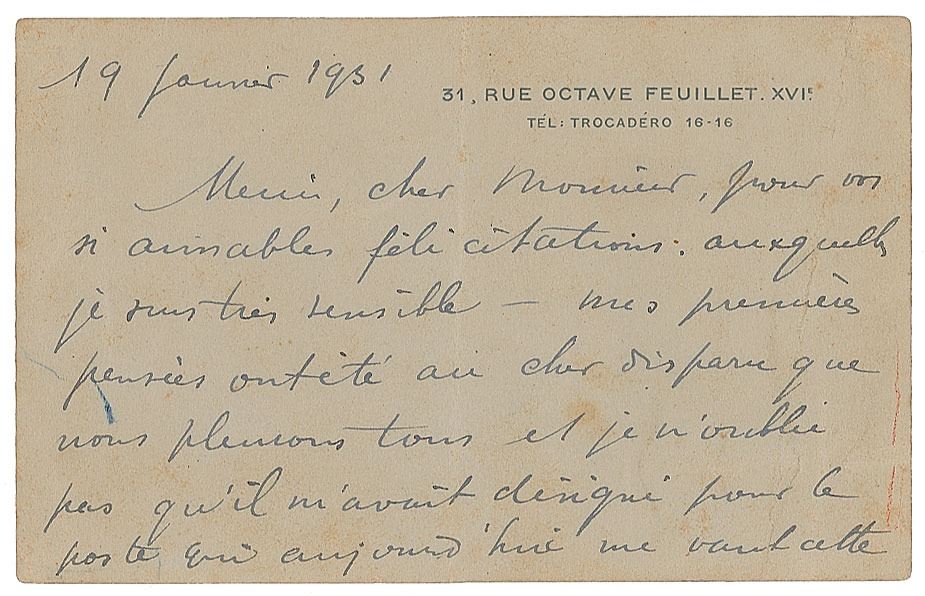 19 janvier 1931
31, RUE OCTAVE FEUILLET. XVIE
TÉL: TROCADÉRO 16-16
Merci, cher Monsieur, pour vos
si aimables félicitations. auxquelles
je suis très sensible – mes premières
pensées ont été au cher disparu que
nous pleurons tous et je n'oublie
pas qu'il m'avait désigné pour le
poste qui aujourd'hui me vaut cette